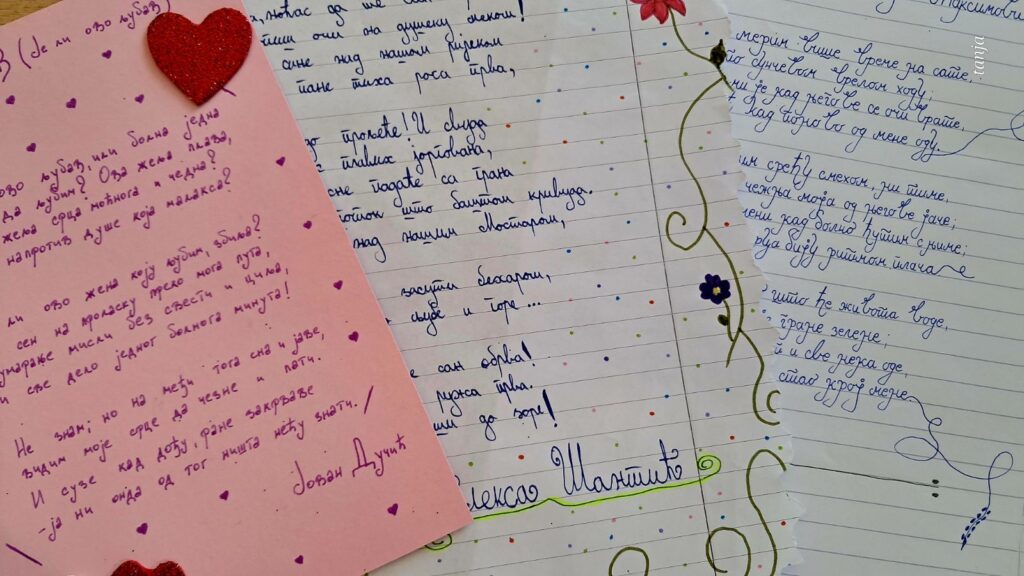 (Је ли ово љубав)
ово љубав, или болна једна
да љубим? Ова жеља плава,
жеља срца моћнога и чедна?
напрот душе која малакса?
ли ово жена коју љубим, збиља?
сен на проласку преко мога пута,
мисли без свести и циља,
и све дело једног болнога минута!
Не знам; но на међи тога сна и јаве,
видим моје срце да чезне и пати.
И сузе кад дођу, ране закрваве
-ја ни онда од тог ништа нећу знати.
Јован Дучић
ноћас да
очи на душеку меком!
сине над нашом ријеком
пане тиха роса прва,
прољеће! И свуда
плавих јоргована,
падаће са грана
поток што баштом кривуда.
над нашим Мостаром,
засути бехаром,
и горе...
сан обрва!
ружа прва.
до зоре!
лекса Шантић
Максимови
мерим више време на сате,
сунчевом врелом ходу;
је кад његове се очи врате,
кад поново од мене оду.
срећу смехом, ни тиме,
чежња моја од његове јаче;
кад болно ћутим с њиме;
бију ритмом плача
што ће живота воде,
гране зелене;
и све нека оде,
кроз мене
tanja